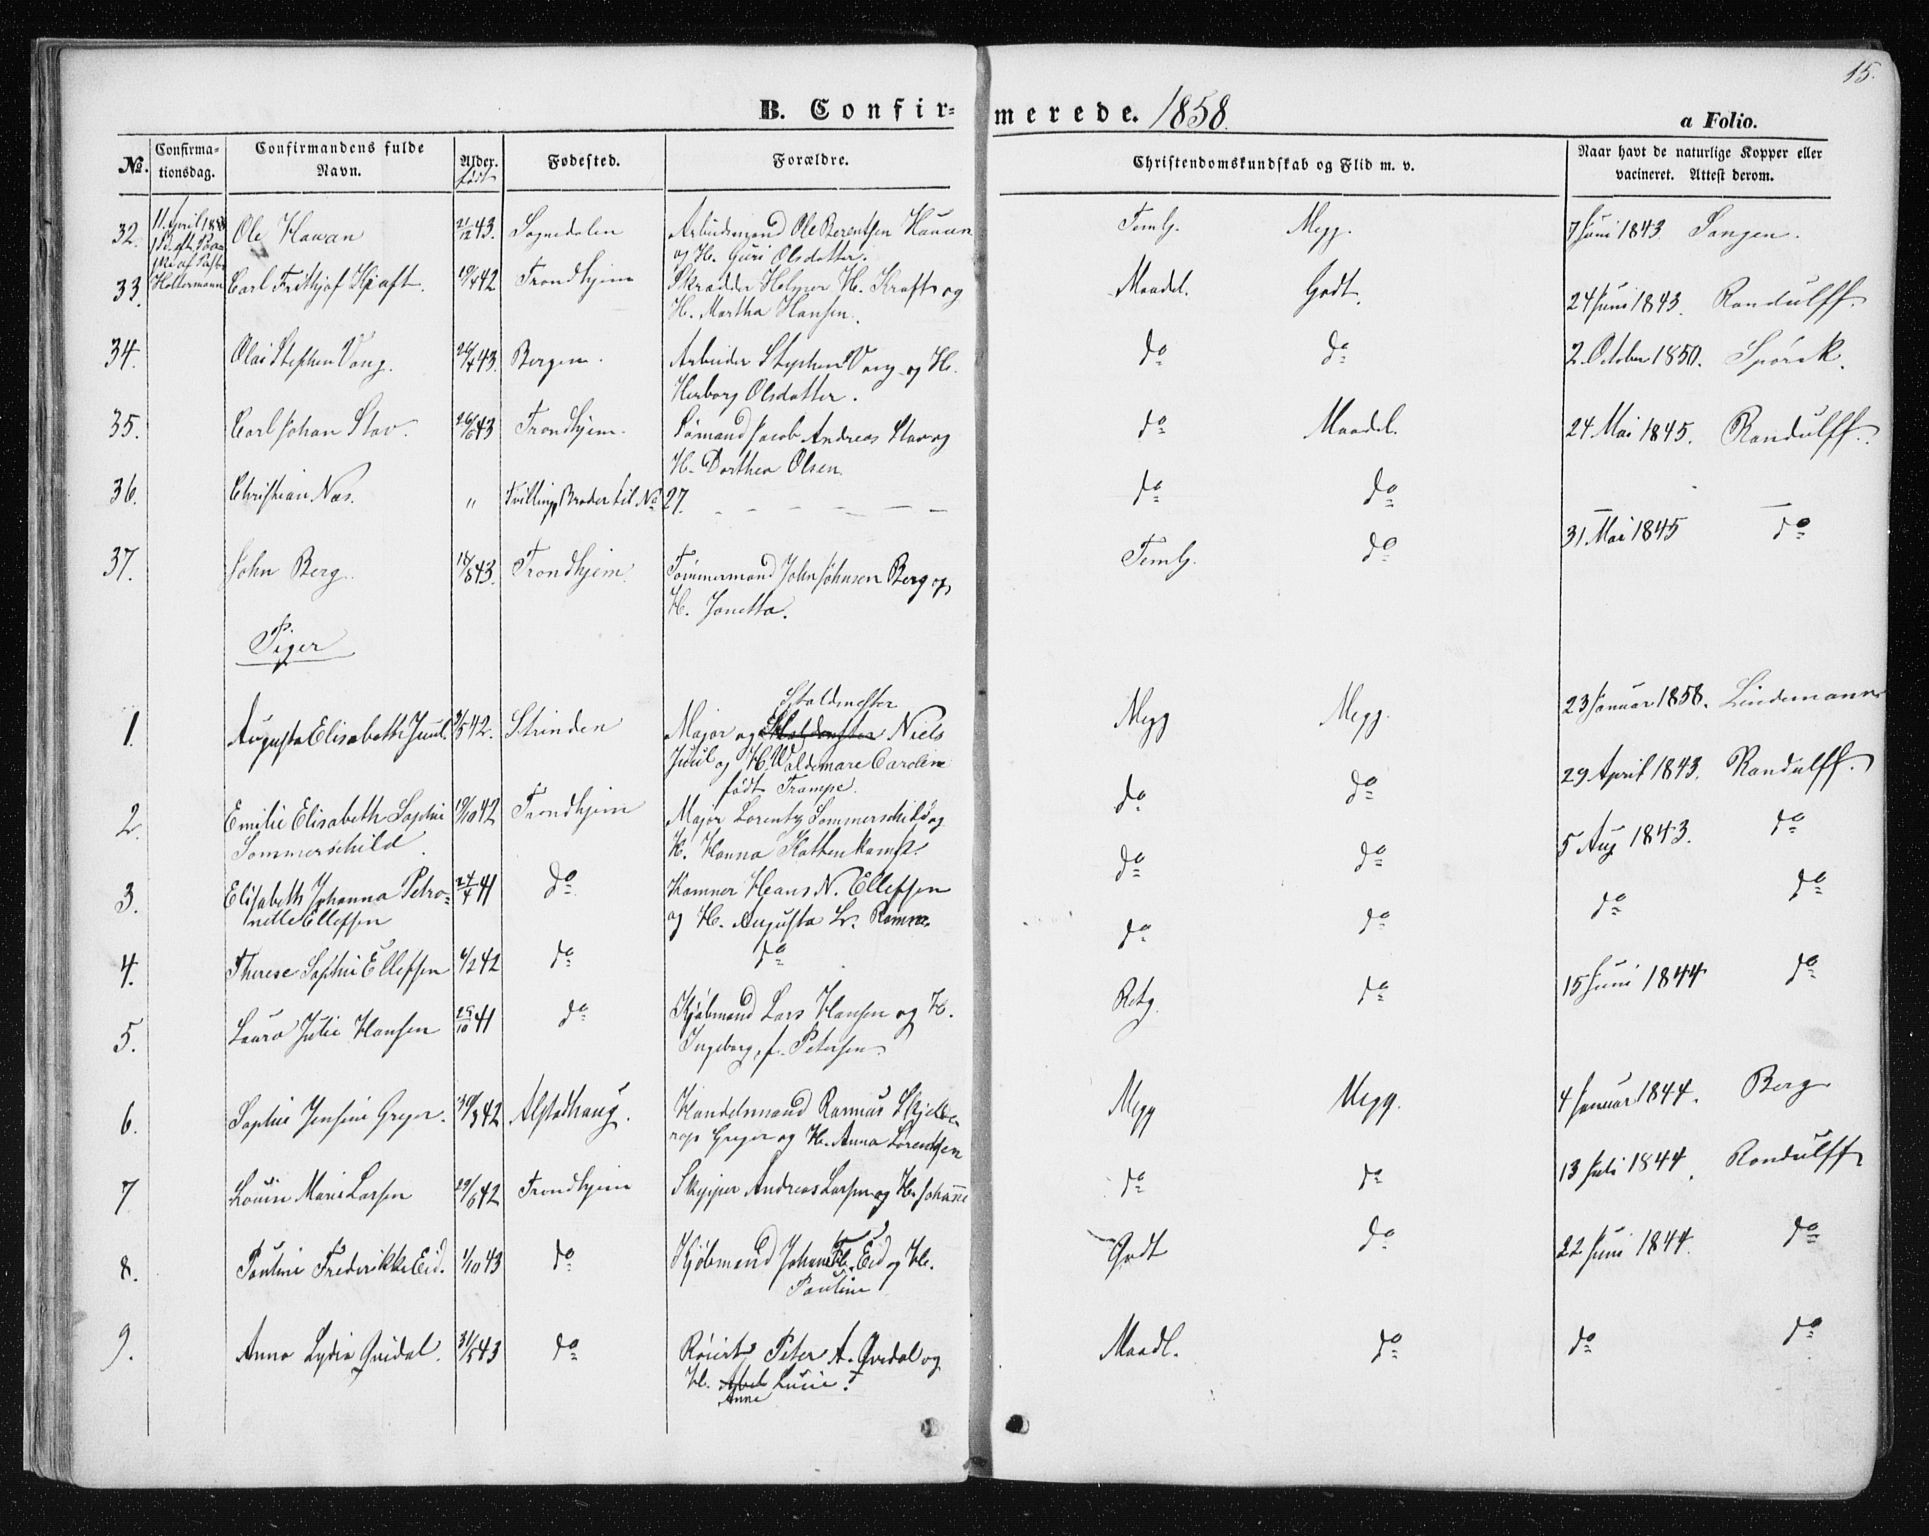 15.
B. Confirmerede. 1858.
a Folio.
No. Confirmationsdag. Confirmandens fulde Navn. Alder. født Fødested. Forældre. Christendomskundskab og Flid m. v. Naar havt de naturlige Kopper eller vacineret. Attest derom.
32. 11 April 1858 Ole Hauan 2/12 43. Sognedalen Arbeidsmand Ole Berentsen Hauan Temlg. Megg. 7 Juni 1843. Sangen.
og H. Guri Olsdatter.
Holtermann
33. Carl Frithjof Kraft. 19/4 42 Trondhjem Skrædder Helmer H. Kraft og Maadel. Godt. 24 Juni 1843. Randulff.
H. Martha Hansen.
34. Olai Stephen Vang. 26/4 43. Bergen. Arbeider Stephen Vang og H. do do 2. October 1850. Spørck.
Herborg Olsdatter.
35. Carl Johan Stav. 26/6 43 Trondhjem. Sømand Jacob Andreas Stav og do Maadel. 24 Mai 1845. Randulff.
H. Dorthea Olsen.
36. Christian Næs. " Tvilling Broder til No 27. do do
37. John Berg. 18/8 43. Trondhjem. Tømmermand John Johnsen Berg og Temlg. do 31. Mai 1845 do
H. Janetta.
Piger
Staldmester
1. Augusta Elisabeth Juul. 3/5 42. Strinden Major og Staldmester Niels Megg Megg. 23 Januar 1858. Lindemann
Juul og H. Valdemare Caroline
født Trampe.
2. Emilie Elisabeth Sophie 19/10 42 Trondhjem Major Lorentz Sommerschild og do do 29 April 1843. Randulff.
Sommerschild. H. Hanna Kattenkamp.
3. Elisabeth Johanna Petro- 24/4 41 do Kamner Hans N. Ellefsen do do 5 Aug 1843. do
nelle Ellefsen og H. Augusta L. Ramm.
4. Therese Sophie Ellefsen 6/2 42 do do do do do do
5. Laura Julie Hansen 29/10 41 do Kjøbmand Lars Hansen og H. Retg. do 15 Juni 1844 do
Ingeborg, f. Petersen
6. Sophie Jensine Greger. 30/3 42 Alstadhaug. Handelsmand Rasmus Skjelde- Megg Megg. 4 Januar 1844. Berg
rop Greger og H. Anna Lorentsen
7 Louise Marie Larsen 29/6 42 Trondhjem Skipper Andreas Larsen og H. Johanne do do 13 Juli 1844. Randulff
8. Pauline Frederikke Eid. 1/10 43 do Kjøbmand Johan Fr. Eid og H. Godt do 22 Juni 1844. do
Pauline
9. Anna Lydia Qvidal. 31/5 43 do Røiert Peter A. Qvedal og Maadl. do do do
H. Abel Lucie.
Anne